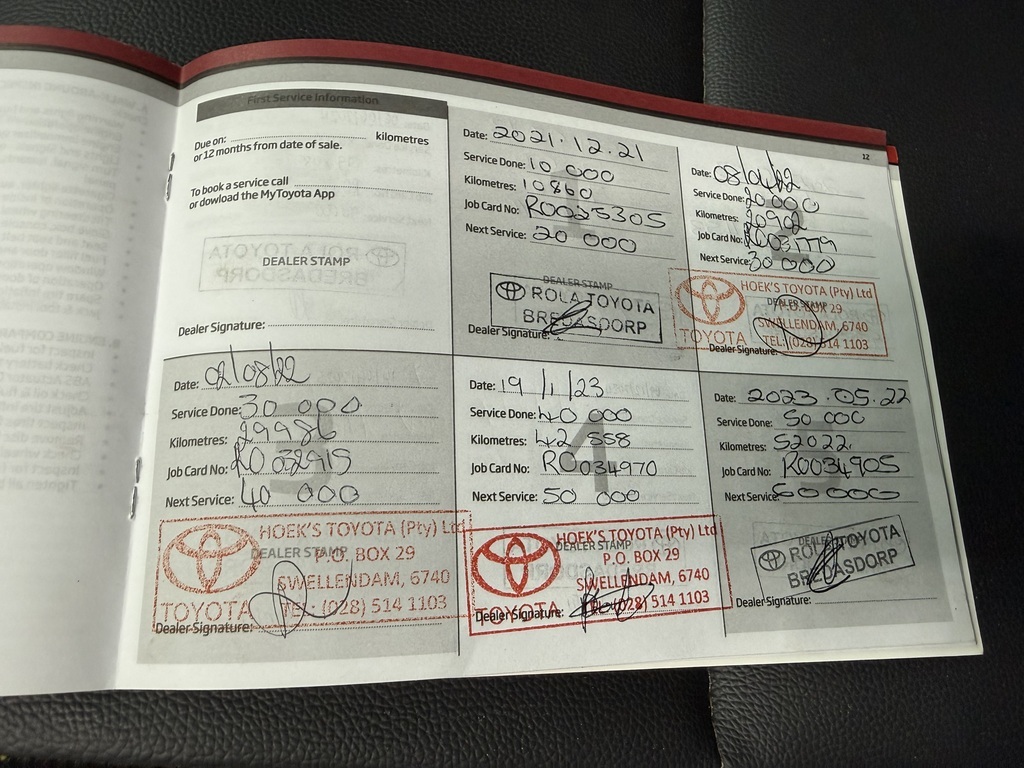 First Service Information
Due on: kilometres
or 12 months from date of sale.
To book a service call
or dowload the MyToyota App
DEALER STAMP
Dealer Signature:
Date: 2021.12.21
Service Done: 10 000
Kilometres: 10860
Job Card No: R0025305
Next Service: 20 000
DEALER STAMP
ROLA TOYOTA
BREDASDORP
Dealer Signature:
12
Date:
Service Done: 20 000
Kilometres: 20902
Job Card No:
Next Service: 30 000
HOEK'S TOYOTA (Pty) Ltd
DEALER STAMP
P.O. BOX 29
SWELLENDAM, 6740
TOYOTA TEL: (028) 514 1103
Dealer Signature:
Date: 02/08/22
Service Done: 30 000
Kilometres: 29986
Job Card No:
Next Service: 40 000
3
HOEK'S TOYOTA (Pty) Ltd
DEALER STAMP
P.O. BOX 29
SWELLENDAM, 6740
TOYOTA TEL: (028) 514 1103
Dealer Signature:
Date: 19/1/23
Service Done: 40 000
Kilometres: 42 558
Job Card No: R0034970
Next Service: 50 000
4
HOEK'S TOYOTA (Pty) Ltd
DEALER STAMP
P.O. BOX 29
SWELLENDAM, 6740
TOYOTA TEL: (028) 514 1103
Dealer Signature:
Date: 2023.05.22
Service Done: 50 000
Kilometres: 52022.
Job Card No: R0034905
Next Service: 60000
DEALER
ROLA TOYOTA
BREDASDORP
Dealer Signature: